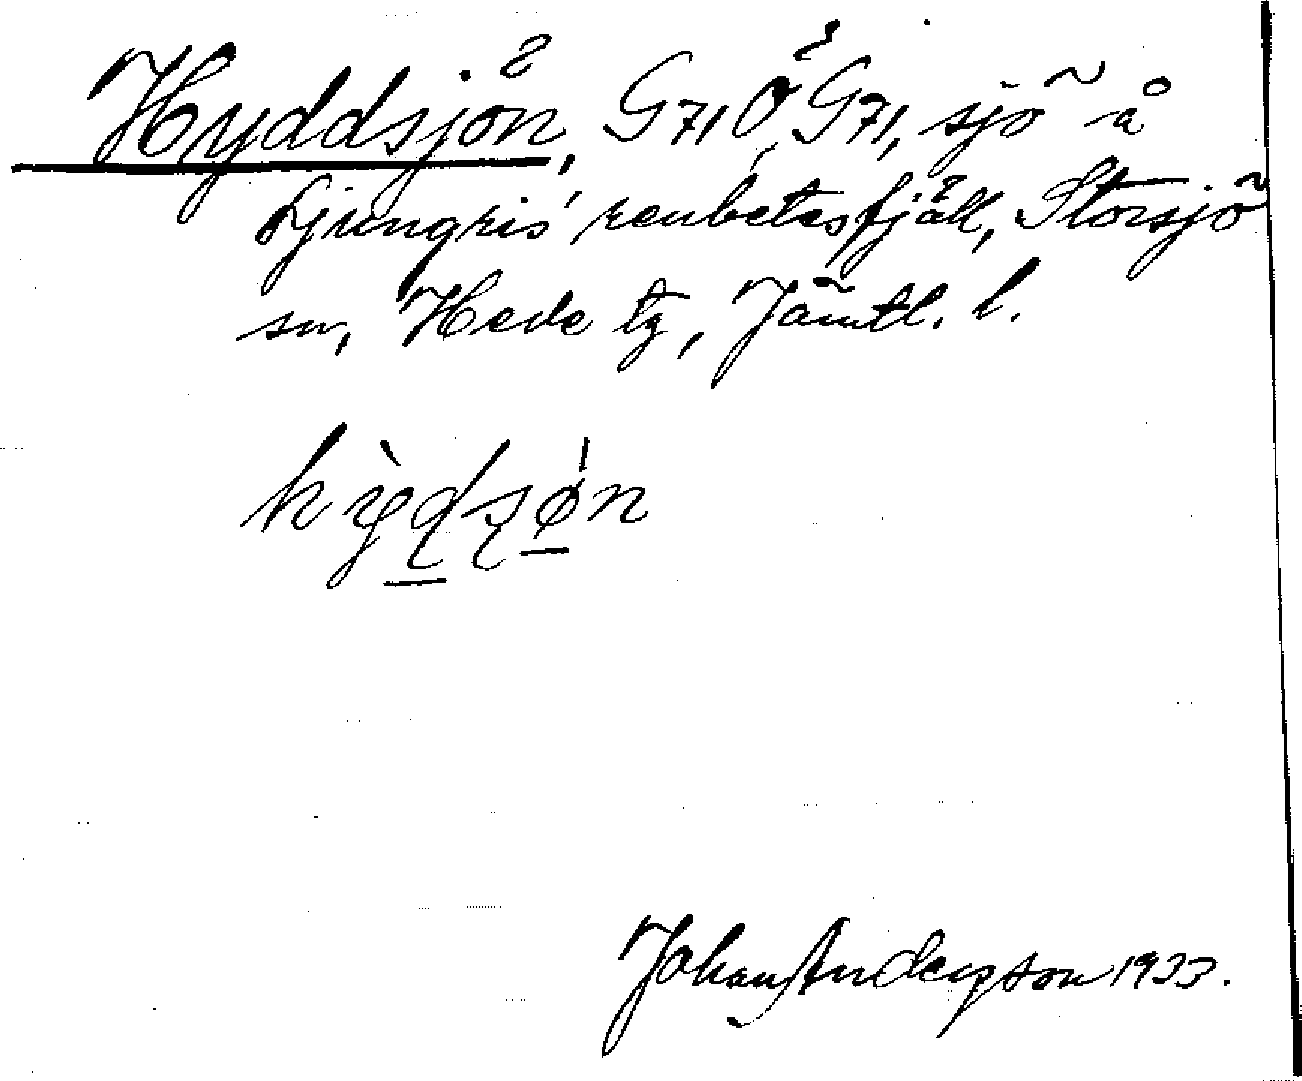 Hyddsjön, G71ÖG71, sjö å
Ljungris' renbetesfjäll, Storsjö
sn, Hede tg, Jämtl. l.
hỳdsøn
Johan Anderson 1933.